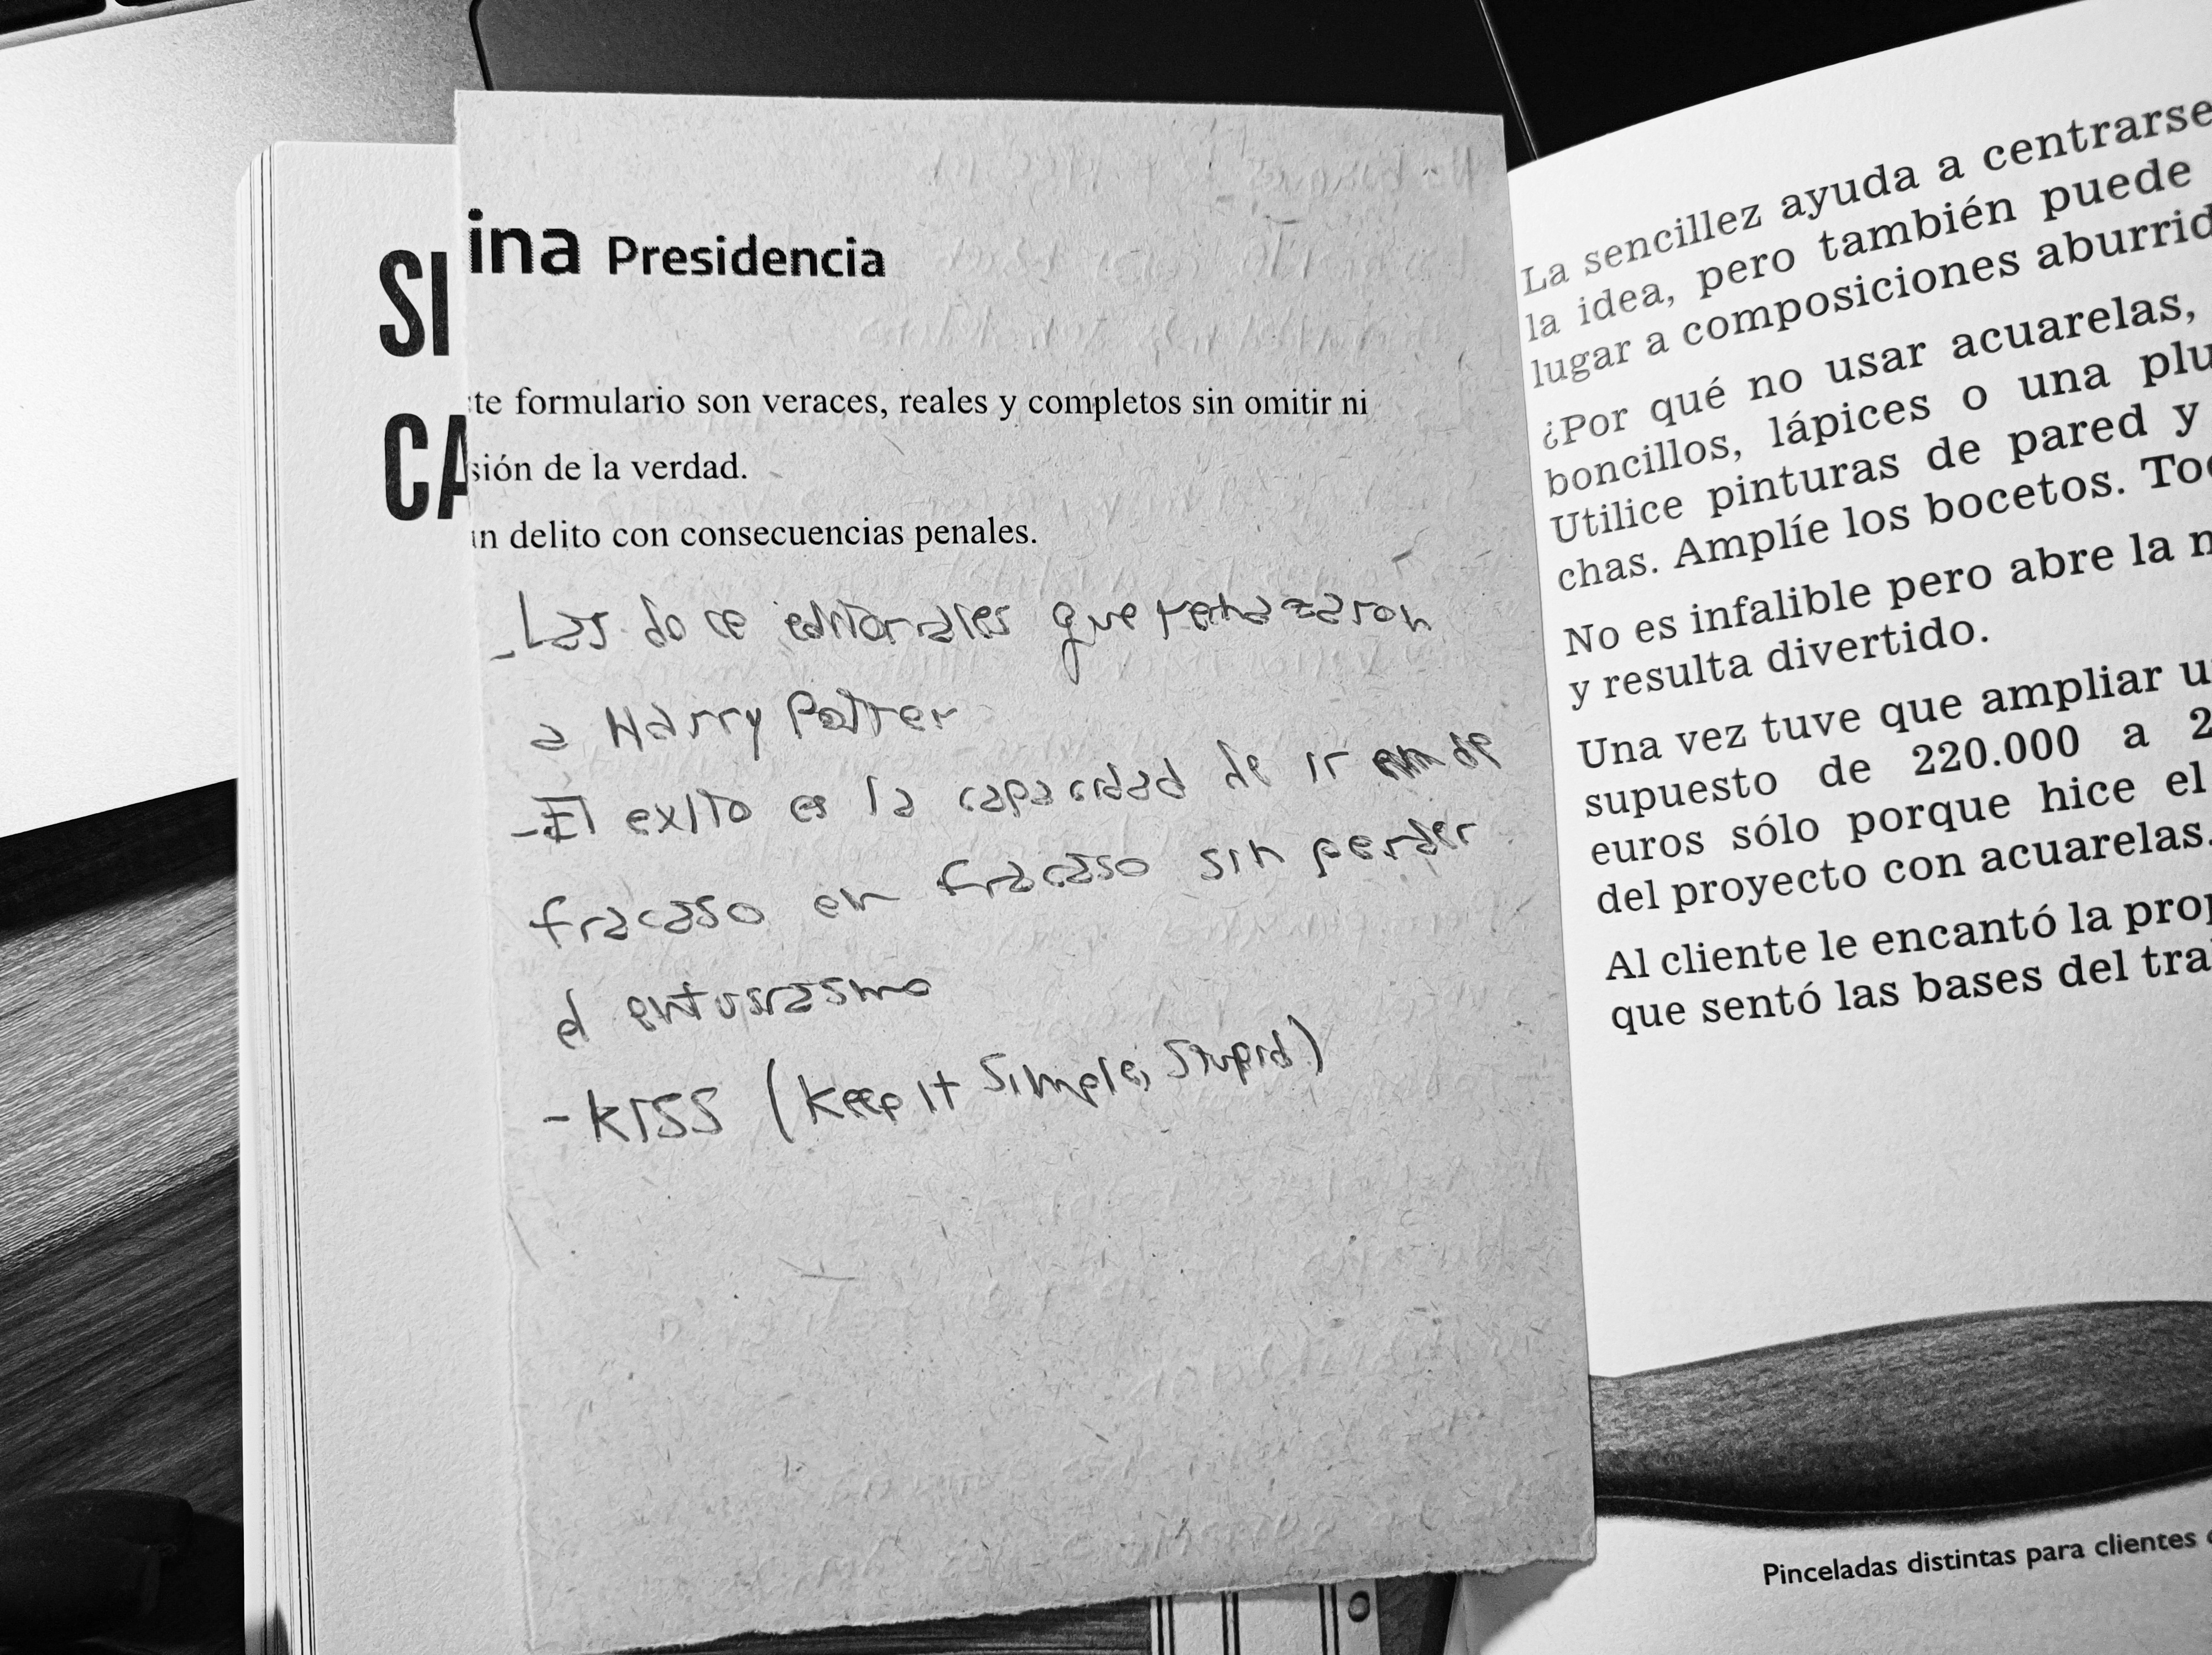 SI
CA
ina Presidencia
te formulario son veraces, reales y completos sin omitir ni
sión de la verdad.
un delito con consecuencias penales.
- Las doce editoriales que rechazaron
a Harry Potter
- El exito es la capacidad de ir de
fracaso en fracaso sin perder
el entusiasmo
- KISS (Keep It Simple, Stupid)
La sencillez ayuda a centrarse
la idea, pero también puede
lugar a composiciones aburrid
¿Por qué no usar acuarelas,
boncillos, lápices o una plu
Utilice pinturas de pared y
chas. Amplíe los bocetos. Too
No es infalible pero abre la
y resulta divertido.
Una vez tuve que ampliar u
supuesto de 220.000 a 2
euros sólo porque hice el
del proyecto con acuarelas.
Al cliente le encantó la prop
que sentó las bases del tra
Pinceladas distintas para clientes